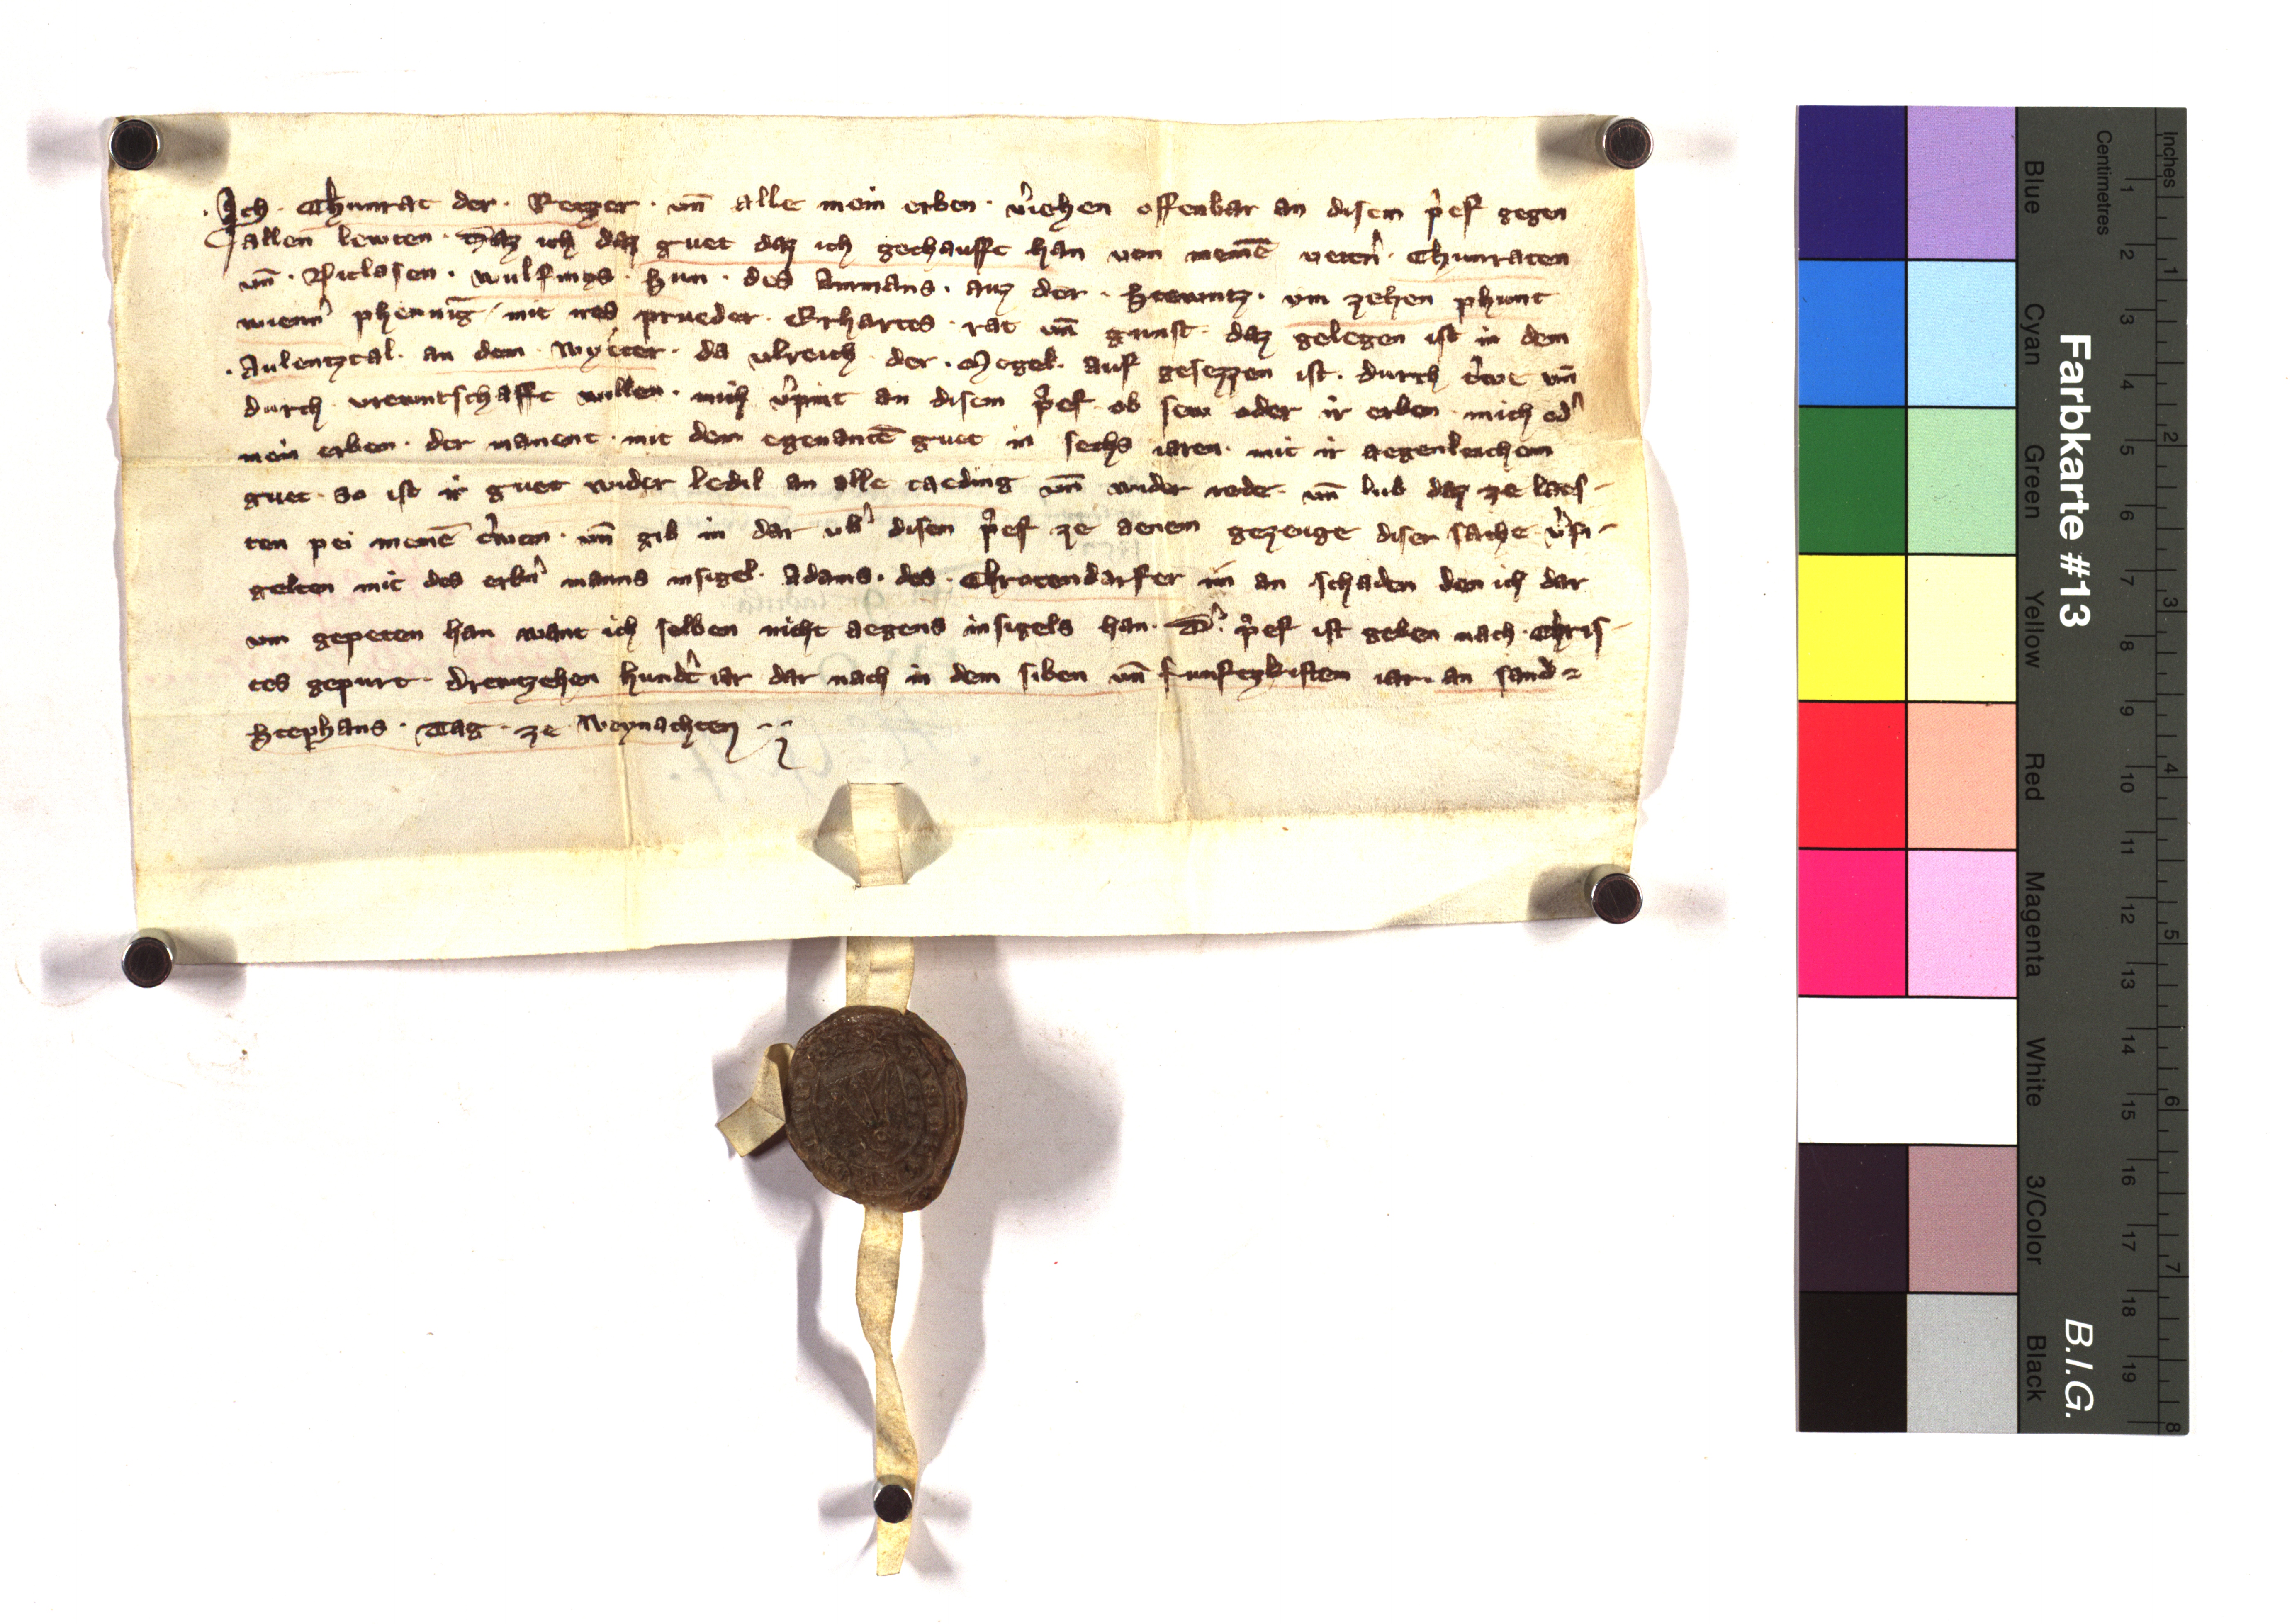 Ich · Chunrat der · Reyzer · vn̄ alle mein erben · v̾iehen offenbar an disem p̾ef gegen
allen lewten · Daz ich daz guet daz ich gechaufft han von meinē vetern̾ · Chunraten
vn̄ · Niclasen · wulfings · Sun · des Ammans · auz der · Stewntz · vm zehen phunt
wienn̾ phennīg mit ires prueder · Erhartes · rat vn̄ gunst · daz gelegen ist in dem
· Aulentztal · an dem · Wyeter · da vlreich · der · Megel · auf gesezzen ist · durch t̾we vn̄
durch vrewntschafft willen · mich v̾pint an disem p̾ef ob sew oder ir erben · mich od̾
mein erben · der manent · mit dem egenantē guet in sechs iaren · mit ir aegenleichem
guet · so ist ir guet wider ledil an alle taeding vn̄ wider rede · vn̄ lub daz ze laes-
ten pei meinē t̾wen · vn̄ gib in dar vb̾ disen p̾ef ze aenem gezeuge diser sache v̾si-
gelten mit des erbn̾ manns insigel · Adams · des · Chrotendarfer im an schaden den ich dar
vm gepeten han want ich selben nicht aegens insigels han · D̾ · p̾ef ist geben nach · Chris-
tes gepurt · drewzehen hund̾t iar dar nach in dem siben vn̄ funftzkisten iar · an sand
Stephans · Tag · ze · Weynachten
Farbkarte #13
B.I.G.
Centimetres
Inches
Blue
Cyan
Green
Yellow
Red
Magenta
White
3/Color
Black
1 2 3 4 5 6 7 8 9 10 11 12 13 14 15 16 17 18 19
1 2 3 4 5 6 7 8